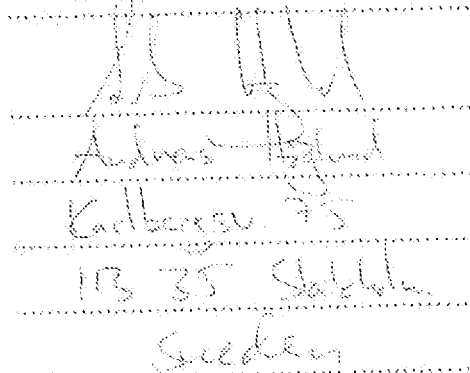 Andreas Höglund
Karlbergsv. 75
113 35 Stockholm
Sweden